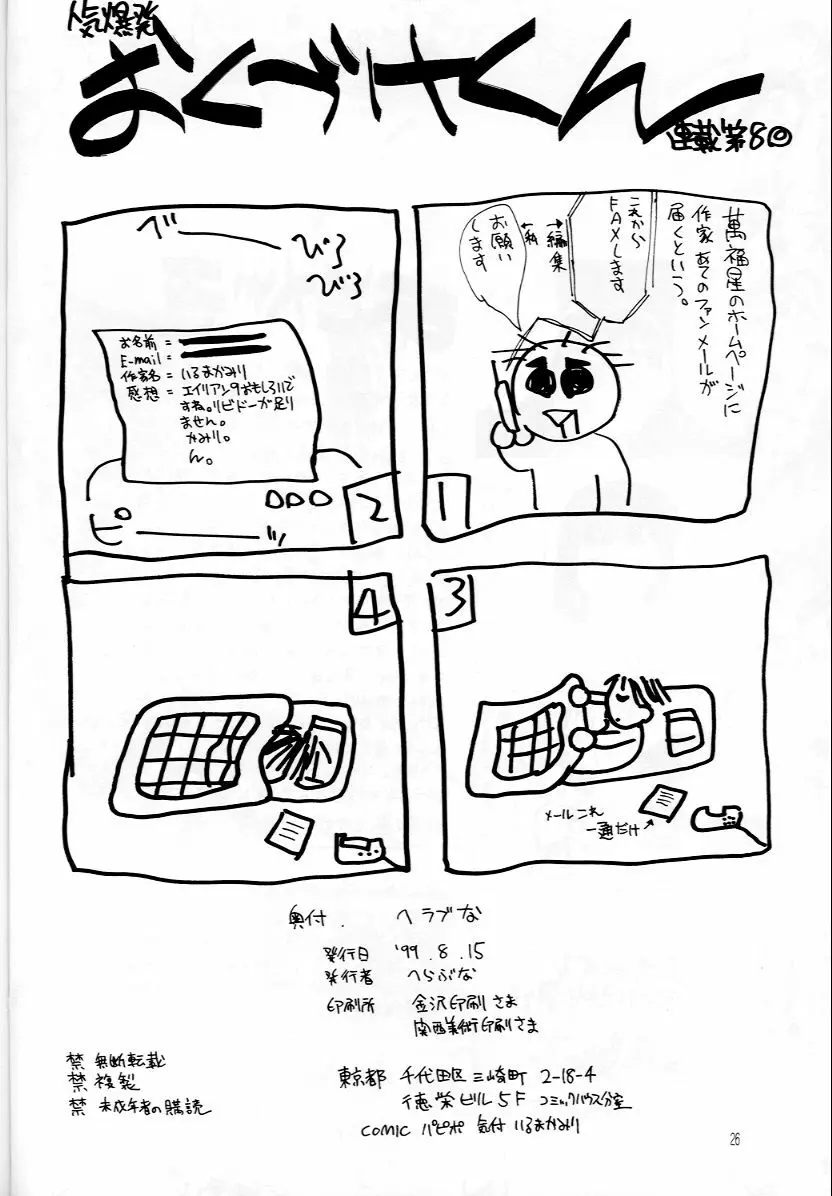 人気爆発
おくづけくん
連載第8回
萬福星のホームページに
作家あてのファンメールが
届くという。
これから
FAXします
→編集
←私
お願い
します
1
ガーーー
びろ
びろ
お名前 =
E-mail =
作家名 = いるまかみり
感想 = エイリアン9おもしろいで
すね。リビドーが足り
ません。
かみり。
ん。
ピーーーッ
2
3
メールこれ
一通だけ
4
奥付. ヘラブな
発行日 '99.8.15
発行者 へらぶな
印刷所 金沢印刷さま
関西美術印刷さま
禁 無断転載
禁 複製
禁 未成年者の購読
東京都 千代田区 三崎町 2-18-4
徳栄ビル5F コミックハウス分室
COMIC パピポ 気付 いるまかみり
26